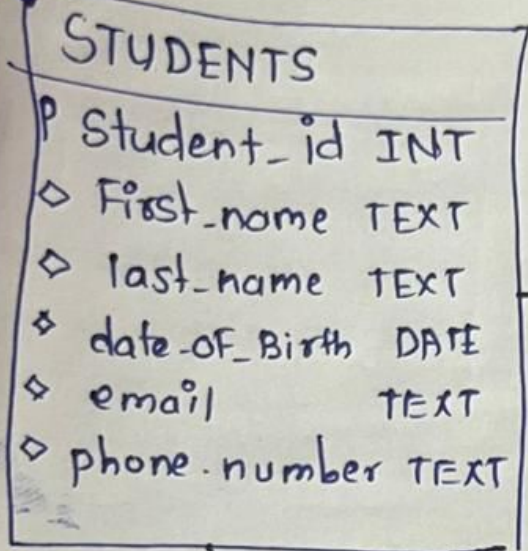 STUDENTS
P Student_id INT
◇ First_name TEXT
◇ last_name TEXT
◇ date_OF_Birth DATE
◇ email TEXT
◇ phone.number TEXT